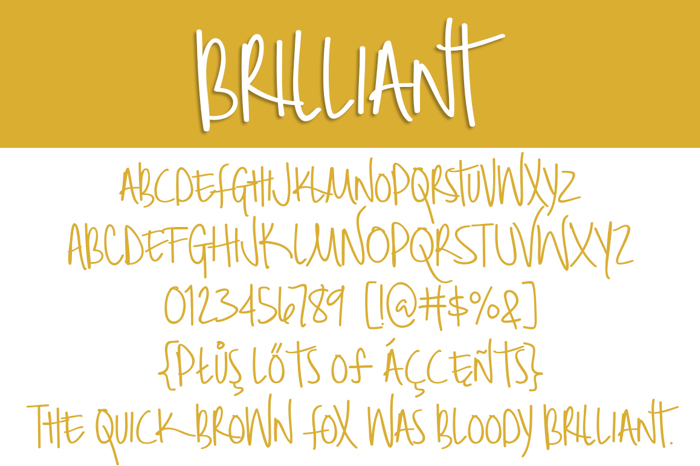 BRILLIANT
ABCDEfGHIJKLMNOPQRSTUVWXYZ
ABCDEFGHIJKLMNOPQRSTUVWXYZ
0123456789 [!@#$%&]
{PŁŮŞ LŐTS Of ÁÇCĘÑTS}
THE QUICK BROWN fOX WAS BLOODY BRILLIANT.